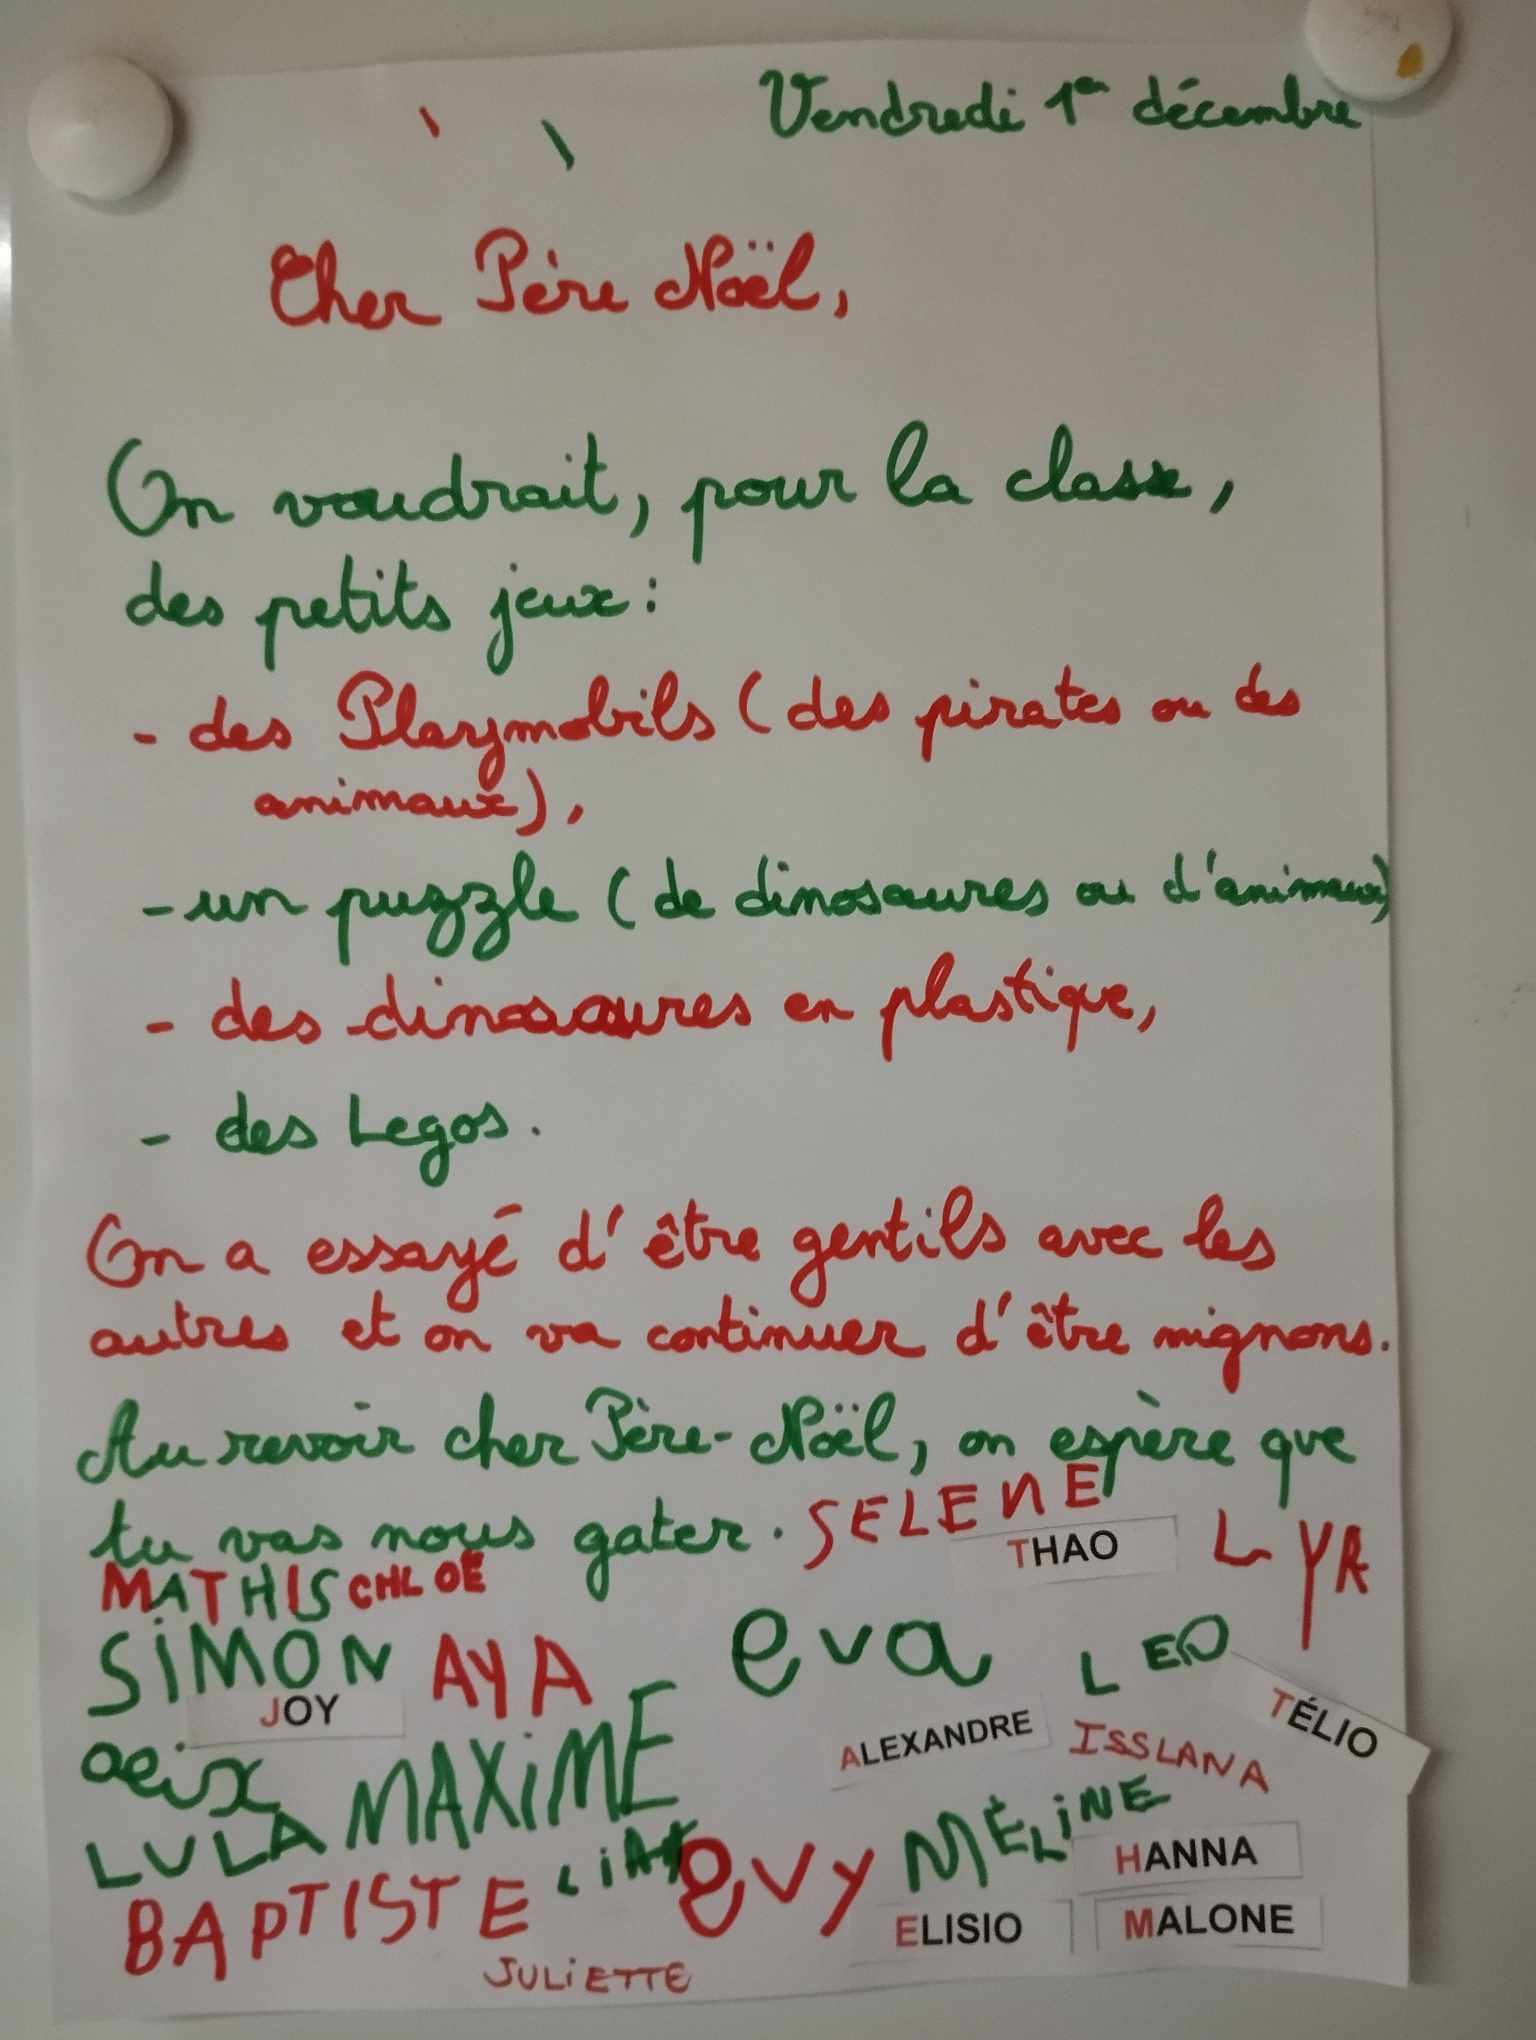 Vendredi 1er décembre
Cher Père Noël,
On voudrait, pour la classe,
des petits jeux :
- des Playmobils (des pirates ou des
animaux),
- un puzzle (de dinosaures ou d'animaux)
- des dinosaures en plastique,
- des Legos.
On a essayé d'être gentils avec les
autres et on va continuer d'être mignons.
Au revoir cher Père-Noël, on espère que
tu vas nous gater. SELENE
THAO LYA
MATHIS CHLOÉ
SiMON AYA eva LEO
JOY ALEXANDRE ISSLANA TÉLIO
MAXiME
LULA MÉLiNE
BAPTISTE evy HANNA
ELISIO MALONE
JULiETTE